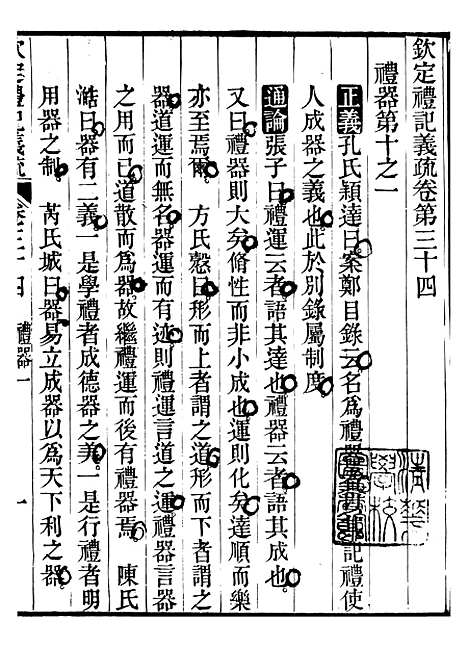 欽定禮記義疏卷第三十四
禮器第十之一
正義孔氏穎達曰案鄭目錄云名為禮器者以其記禮使
人成器之義也此於別錄屬制度
通論張子曰禮運云者語其達也禮器云者語其成也
又曰禮器則大矣脩性而非小成也運則化矣達順而樂
亦至焉爾　方氏慤曰形而上者謂之道形而下者謂之
器道運而無名器運而有迹則禮運言道之運禮器言器
之用而已道散而為器故繼禮運而後有禮器焉　陳氏
澔曰器有二義一是學禮者成德器之美一是行禮者明
用器之制　芮氏城曰器易立成器以為天下利之器
欽定禮記義疏　卷三十四　禮器一　一
清華學校